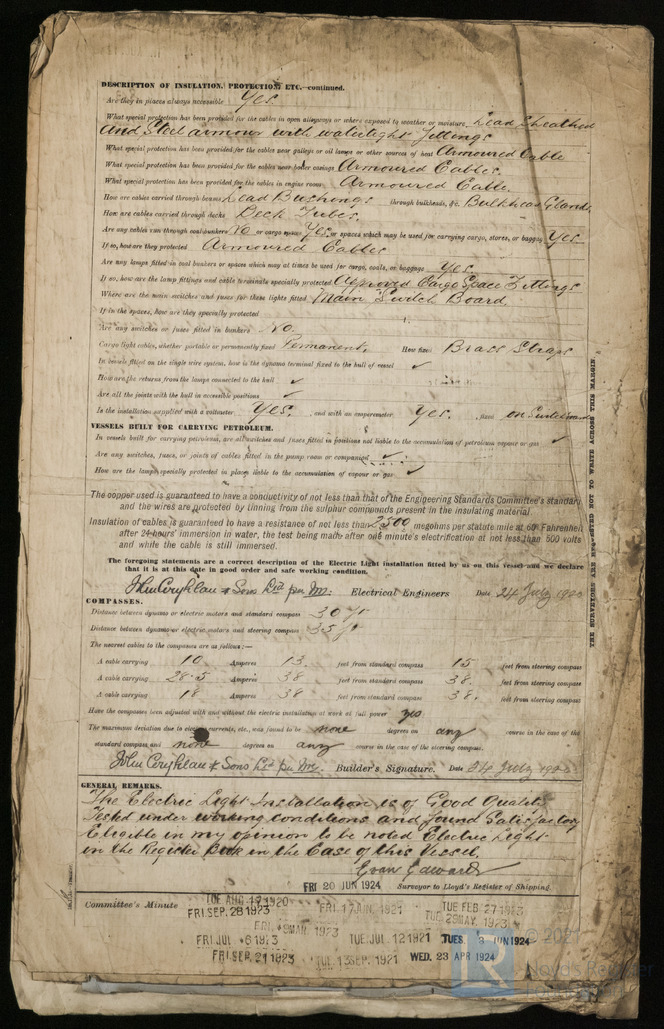 DESCRIPTION OF INSULATION, PROTECTION, ETC.—continued.
Are they in places always accessible Yes.
What special protection has been provided for the cables in open alleyways or where exposed to weather or moisture Lead Sheathed
and Steel armour with watertight Fittings
What special protection has been provided for the cables near galleys or oil lamps or other sources of heat Armoured Cable
What special protection has been provided for the cables near boiler casings Armoured Cables.
What special protection has been provided for the cables in engine room Armoured Cable.
How are cables carried through beams Lead Bushings through bulkheads, &c. Bulkhead Glands.
How are cables carried through decks Deck Tubes.
Are any cables run through coal bunkers No or cargo spaces Yes or spaces which may be used for carrying cargo, stores, or baggage Yes
If so, how are they protected Armoured Cables
Are any lamps fitted in coal bunkers or spaces which may at times be used for cargo, coals, or baggage Yes.
If so, how are the lamp fittings and cable terminals specially protected Approved Cargo Space Fittings
Where are the main switches and fuses for these lights fitted Main Switch Board
If in the spaces, how are they specially protected
Are any switches or fuses fitted in bunkers No.
Cargo light cables, whether portable or permanently fixed Permanent. How fixed Brass Straps
In vessels fitted on the single wire system, how is the dynamo terminal fixed to the hull of vessel ✓
How are the returns from the lamps connected to the hull ✓
Are all the joints with the hull in accessible positions ✓
Is the installation supplied with a voltmeter Yes. , and with an amperemeter Yes. , fixed on Switchboard
VESSELS BUILT FOR CARRYING PETROLEUM.
In vessels built for carrying petroleum, are all switches and fuses fitted in positions not liable to the accumulation of petroleum vapour or gas ✓
Are any switches, fuses, or joints of cables fitted in the pump room or companion ✓
How are the lamps specially protected in places liable to the accumulation of vapour or gas ✓
The copper used is guaranteed to have a conductivity of not less than that of the Engineering Standards Committee's standard
and the wires are protected by tinning from the sulphur compounds present in the insulating material
Insulation of cables is guaranteed to have a resistance of not less than 2500 megohms per statute mile at 60° Fahrenheit
after 24 hours' immersion in water, the test being made after one minute's electrification at not less than 500 volts
and while the cable is still immersed.
The foregoing statements are a correct description of the Electric Light installation fitted by us on this vessel and we declare
that it is at this date in good order and safe working condition.
& Sons Ltd Electrical Engineers Date 24 July 1920
COMPASSES.
Distance between dynamo or electric motors and standard compass 30 ft
Distance between dynamo or electric motors and steering compass 35 ft
The nearest cables to the compasses are as follows:—
A cable carrying 10 Amperes 13 feet from standard compass 15 feet from steering compass
A cable carrying 28.5 Amperes 38 feet from standard compass 38. feet from steering compass
A cable carrying 18 Amperes 38 feet from standard compass 38. feet from steering compass
Have the compasses been adjusted with and without the electric installation at work at full power yes
The maximum deviation due to electric currents, etc., was found to be none degrees on any course in the case of the
standard compass and none degrees on any course in the case of the steering compass.
& Sons Ltd Builder's Signature. Date 24 July 1920
GENERAL REMARKS.
The Electric Light Installation is of Good Quality
Tested under working conditions and found Satisfactory
Eligible in my opinion to be noted Electric Light
in the Register Book in the Case of this Vessel.
Evan Edwards
FRI 20 JUN 1924 Surveyor to Lloyd's Register of Shipping.
Committee's Minute TUE AUG 17 1920 FRI 17 JUN. 1921 TUE FEB 27 1923
FRI. SEP. 28 1923 TUE 29 MAY. 1923
FRI. 9 MAR. 1923
FRI. JUL 6 1923 TUE. JUL 12 1921 TUES. 3 JUN 1924
FRI. SEP. 21 1923 TUE 13 SEP. 1921 WED. 23 APR 1924
THE SURVEYORS ARE REQUESTED NOT TO WRITE ACROSS THIS MARGIN.
© 2021
Lloyd's Register
Foundation